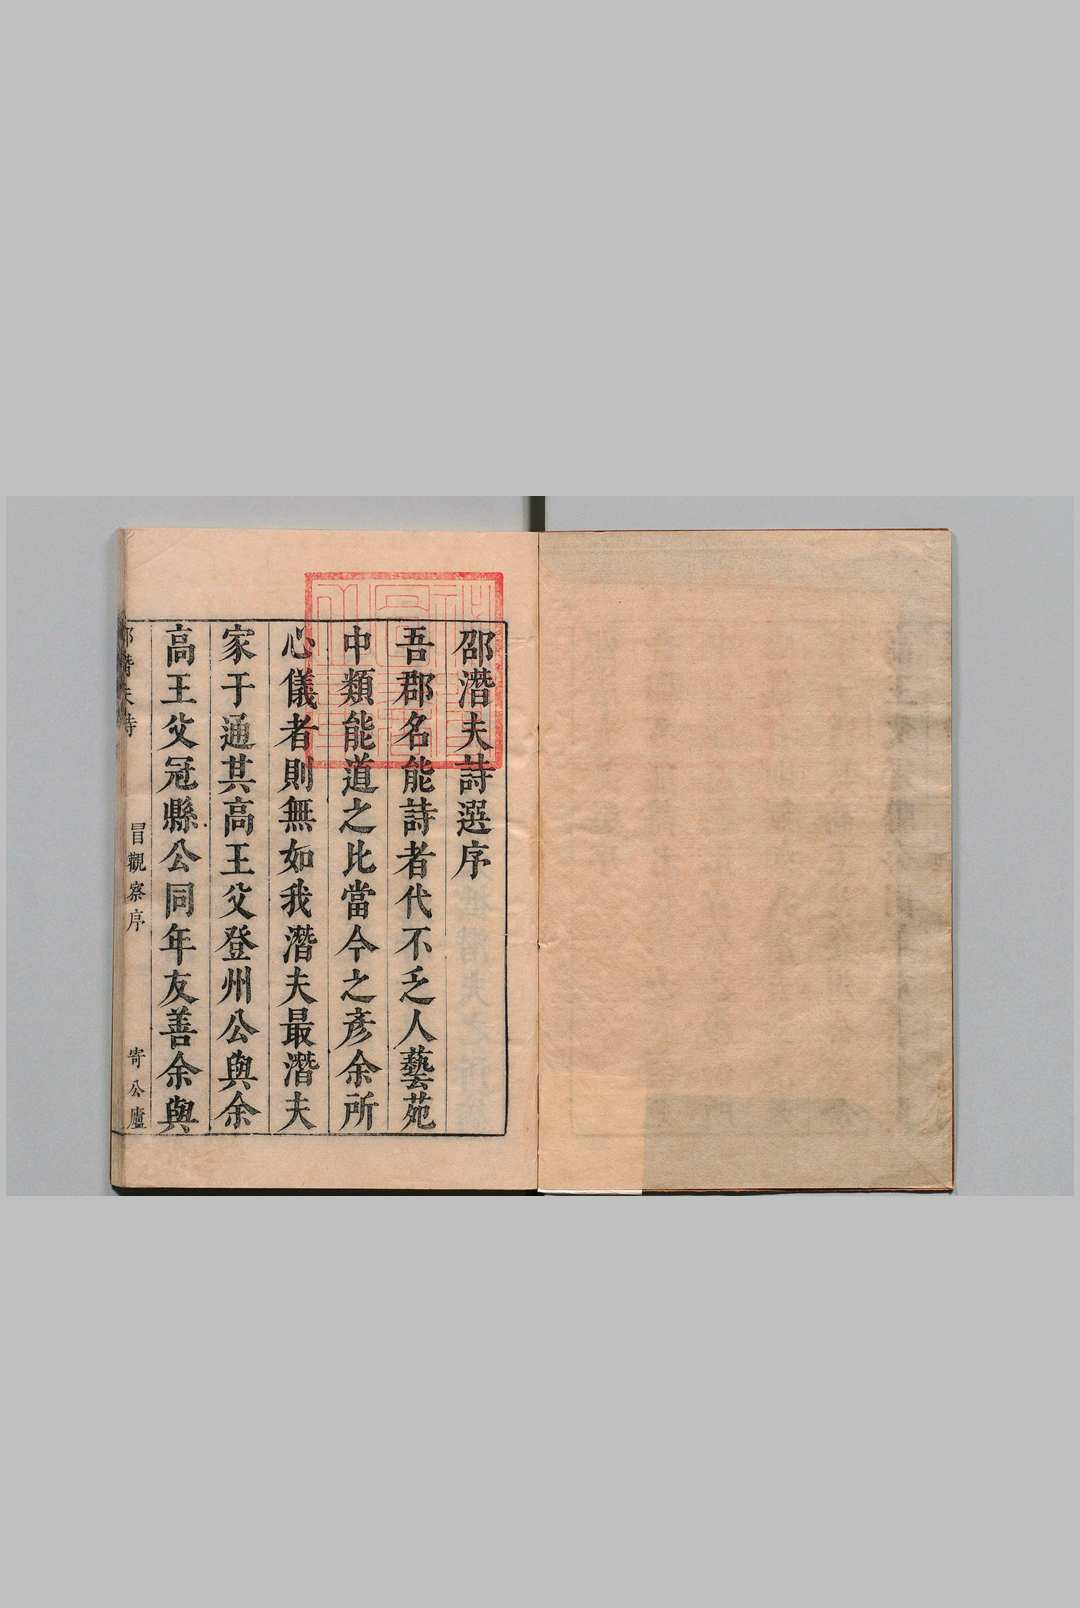 邵潛夫詩選序
吾郡名能詩者代不乏人藝苑
中類能道之比當今之彥余所
心儀者則無如我潛夫最潛夫
家于通其高王父登州公與余
高王父冠縣公同年友善余與
邵潛夫詩
冒觀察序
寄公廬